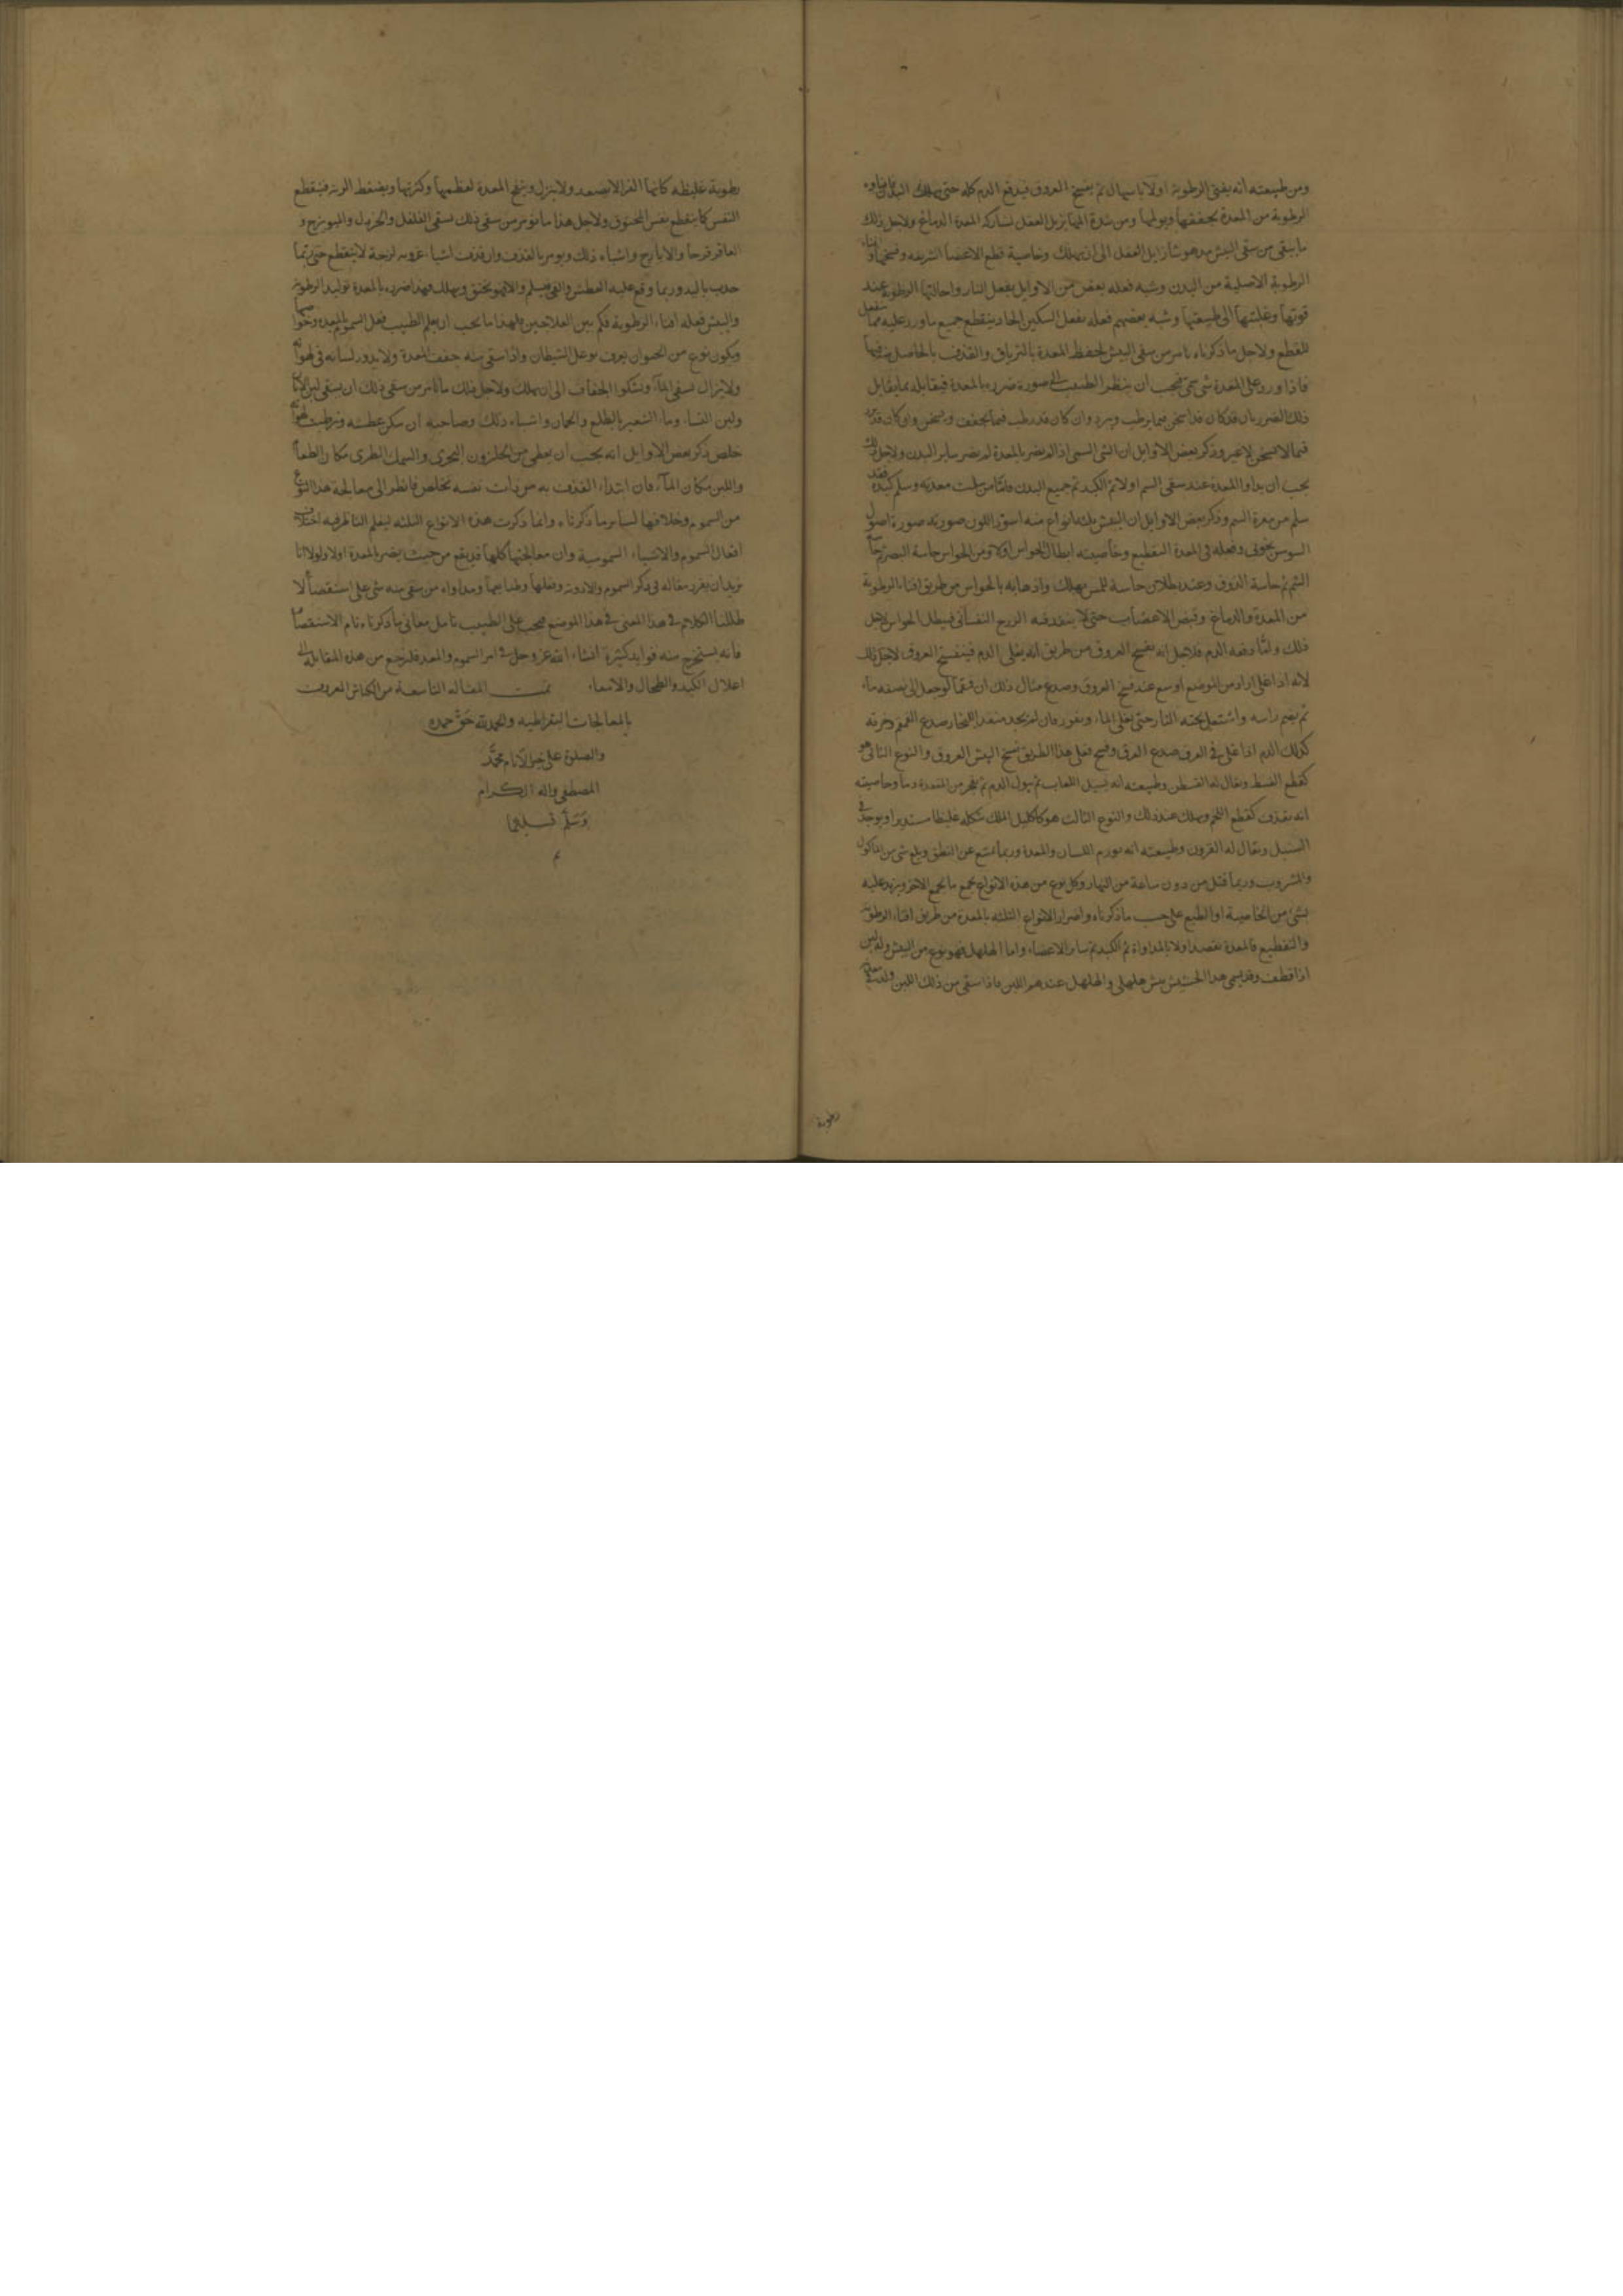 ومن طبيعته انه يفنى الرطوبة اولا باسهال ثم يفسخ العروق فيدفع الدم كله حتى يهلك البدن
الرطوبة من المعدة يجففها ويولمها ومن شدة المها يزيل العقل لمشاركة المعدة الدماغ ولاجل ذلك
ما يبقى من سقى البيش مدهوشا زايل العقل الى ان يهلك وخاصية قطع الاعضا الشريفه وفسخها
الرطوبة الاصلية من البدن وشبه فعله بعض من الاوايل بفعل النار واحالتها الرطوبة عند
قوتها وغلبتها الى طبيعتها وشبه بعضهم فعله بفعل السكين الحاد يقطع جميع ما ورد عليه
للقطع ولاجل ما ذكرناه نامر من سقى البيش بحفظ المعدة بالترياق والقذف بالحاصل فيها
فاذا ورد على المعدة شى سمى فيجب ان ينظر الطبيب الى صورة ضرره بالمعدة فيقابله بما يقابل
ذلك الضرر بان قد كان قد اسخن فما يرطب ويبرد وان كان قد رطب فما يجفف ويسخن وان كان قد
فما لا يسخن لا غير وذكر بعض الاوايل ان الشى السمى اذا لم يضر بالمعدة لم يضر ساير البدن ولاجل ذلك
يجب ان يداوا المعدة عند سقى السم اولا ثم الكبد ثم جميع البدن فاما من سلمت معدته وسلم كبده فقد
سلم من معرة السم وذكر بعض الاوايل ان البيش ثلث انواع منه اسود اللون صورته صورة اصول
السوسن مجوف وفعله فى المعدة التقطيع وخاصيته ابطال الحواس اولا ومن الحواس حاسة البصر ثم
الشم ثم حاسة الذوق وعند بطلان حاسة اللمس يهلك واذهابه بالحواس من طريق افناء الرطوبة
من المعدة والدماغ وقبض الاعصاب حتى لا ينفذ فيه الروح النفسانى فيبطل الحواس لاجل
ذلك واما دفعه الدم فلاجل انه يفسخ العروق من طريق انه يغلى الدم فينفسخ العروق لاجل ذلك
لانه اذا غلى اراد من الموضع اوسع عند فسخ العروق وصدع مثال ذلك ان قمقما لو جعل الى نصفه ماء
ثم يضم راسه واشتعل تحته النار حتى يغلى الماء ويفور فان لم يجد منفذا للبخار صدع القمقم وخرقه
كذلك الدم اذا غلى فى العرق صدع العرق وفسخ فعلى هذا الطريق فسخ البيش العروق والنوع الثانى هو
كقطع القسط ويقال له القسطى وطبيعته انه يسيل اللعاب ثم يبول الدم ثم يفجر من المقعدة دما وخاصيته
انه يقذف كقطع اللحم ويهلك عند ذلك والنوع الثالث هو كاكليل الملك شكله غليظا مستديرا ويوجد فى
السنبل ويقال له القرون وطبيعته انه يورم اللسان والمعدة وربما يمنع عن النطق وبلع شى من الماكول
والمشروب وربما قتل من دون ساعة من النهار وكل نوع من هذه الانواع يجمع ما يجمع الاخر ويزيد عليه
بشئ من الخاصية او الطبع على حسب ما ذكرناه واضرار الانواع الثلثه بالمعدة من طريق افناء الرطوبة
والتقطيع فالمعدة يقصد اولا بالمداواة ثم الكبد ثم ساير الاعضاء واما الهلهل فهو نوع من البيش وله لبن
اذا قطف وقد يسمى هذا الحشيش بيش هلهلى والهلهل عندهم اللبن فاذا سقى من ذلك اللبن
رطوبة
رطوبة غليظه كانها الغرا لا يصعد ولا ينزل وينفخ المعدة لعظمها وكثرتها ويضغط الريه فينقطع
النفس كما ينقطع نفس المخنوق ولاجل هذا ما نومر من سقى ذلك بسقى الفلفل والخردل والميويزج و
العاقرقرحا والايارج واشباه ذلك ويومر بالقذف وان قذف اشياء غرويه لزجة لا ينقطع حتى ربما
جذب باليد وربما وقع عليه العطش والقى فيسلم والا فهو يختنق ويهلك فهذا ضرره بالمعدة توليد الرطوبة
والبيش فعله افناء الرطوبة فكم بين العلاجين فلهذا ما يجب ان يعلم الطبيب فعل السم بالمعدة
ويكون نوع من الحيوان يعرف بوعل الشيطان واذا سقى منه جفف المعدة ولا يدور لسانه فى لهواته
ولا يزال يسقى الماء ويشكوا الجفاف الى ان يهلك ولاجل ذلك ما نامر من سقى ذلك ان يسقى لبن الاتان
ولبن النساء وماء الشعير بالطلع والجمار واشباه ذلك وصاحبه ان سكن عطشه وترطبت لهواته
خلص ذكر بعض الاوايل انه يجب ان يعطى من الحلزون البحرى والسمك الطرى مكان الطعام
واللبن مكان الماء فان ابتداء القذف به من ذات نفسه تخلص فانظر الى معالجة هذا النوع
من السموم وخلافها لساير ما ذكرناه وانما ذكرت هذه الانواع الثلثه ليعلم الناظر فيه اختلاف
افعال السموم والاشياء السمومية وان معالجتها كلها قد يقع من حيث يضر بالمعدة اولا ولولا انا
نريد ان نفرد مقاله فى ذكر السموم والادويه وفعلها وطبايعها ومداواه من سقى منه شى على استقصاء لا
طلنا الكلام فى هذا المعنى فى هذا الموضع فيجب على الطبيب تامل معانى ما ذكرناه تام الاستقصاء
فانه يستخرج منه فوايد كثيرة انشاء الله عز وجل فى امر السموم والمعدة فلنرجع من هذه المقابله الى
اعلال الكبد والطحال والامعاء تمت المقاله التاسعة من الكناش المعروف
بالمعالجات البقراطيه والحمد لله حق حمده
والصلوة على خير الانام محمد
المصطفى واله الكرام
وسلم تسليما
م